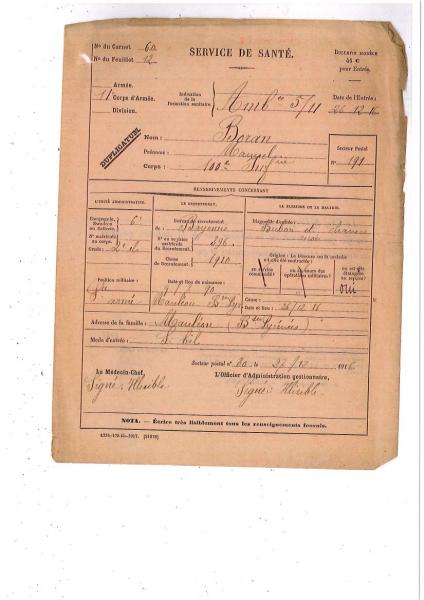 N° du Carnet 60
N° du Feuillet 12
SERVICE DE SANTÉ.
BULLETIN MODÈLE
46 C
pour Entrée.
Armée.
11e Corps d'Armée.
Division.
Indication de la
formation sanitaire
Amb ce 5/11
Date de l'Entrée :
26-12-16
DUPLICATUM.
Nom : Boran
Prénoms :
Corps : 100e Inf
Secteur Postal
N° 191
RENSEIGNEMENTS CONCERNANT
L'UNITÉ ADMINISTRATIVE.
LE RECRUTEMENT.
LA BLESSURE OU LA MALADIE.
Compagnie,
Escadron
ou Batterie.
6e
N° matricule
au corps.
Grade : 2e cl
Bureau de recrutement
de : Bayonne
N° au registre
matricule
du Recrutement.
896
Classe
de Recrutement.
1910
Diagnostic d'entrée :
Origine : La blessure ou la maladie
a-t-elle été contractée :
en service
commandé ?
au cours des
opérations militaires ?
est-elle
étrangère
au service ?
oui
Position militaire :
armée
Date et lieu de naissance :
Mauléon
Cause :
Date et lieu : 26/12 16
Adresse de la famille : Mauléon (Bses Pyrénées)
Mode d'entrée :
Secteur postal n° 20 le 27/12 1916
Le Médecin-Chef,
L'Officier d'Administration gestionnaire,
Signé : Illisible
Signé : Illisible
NOTA. — Écrire très lisiblement tous les renseignements fournis.